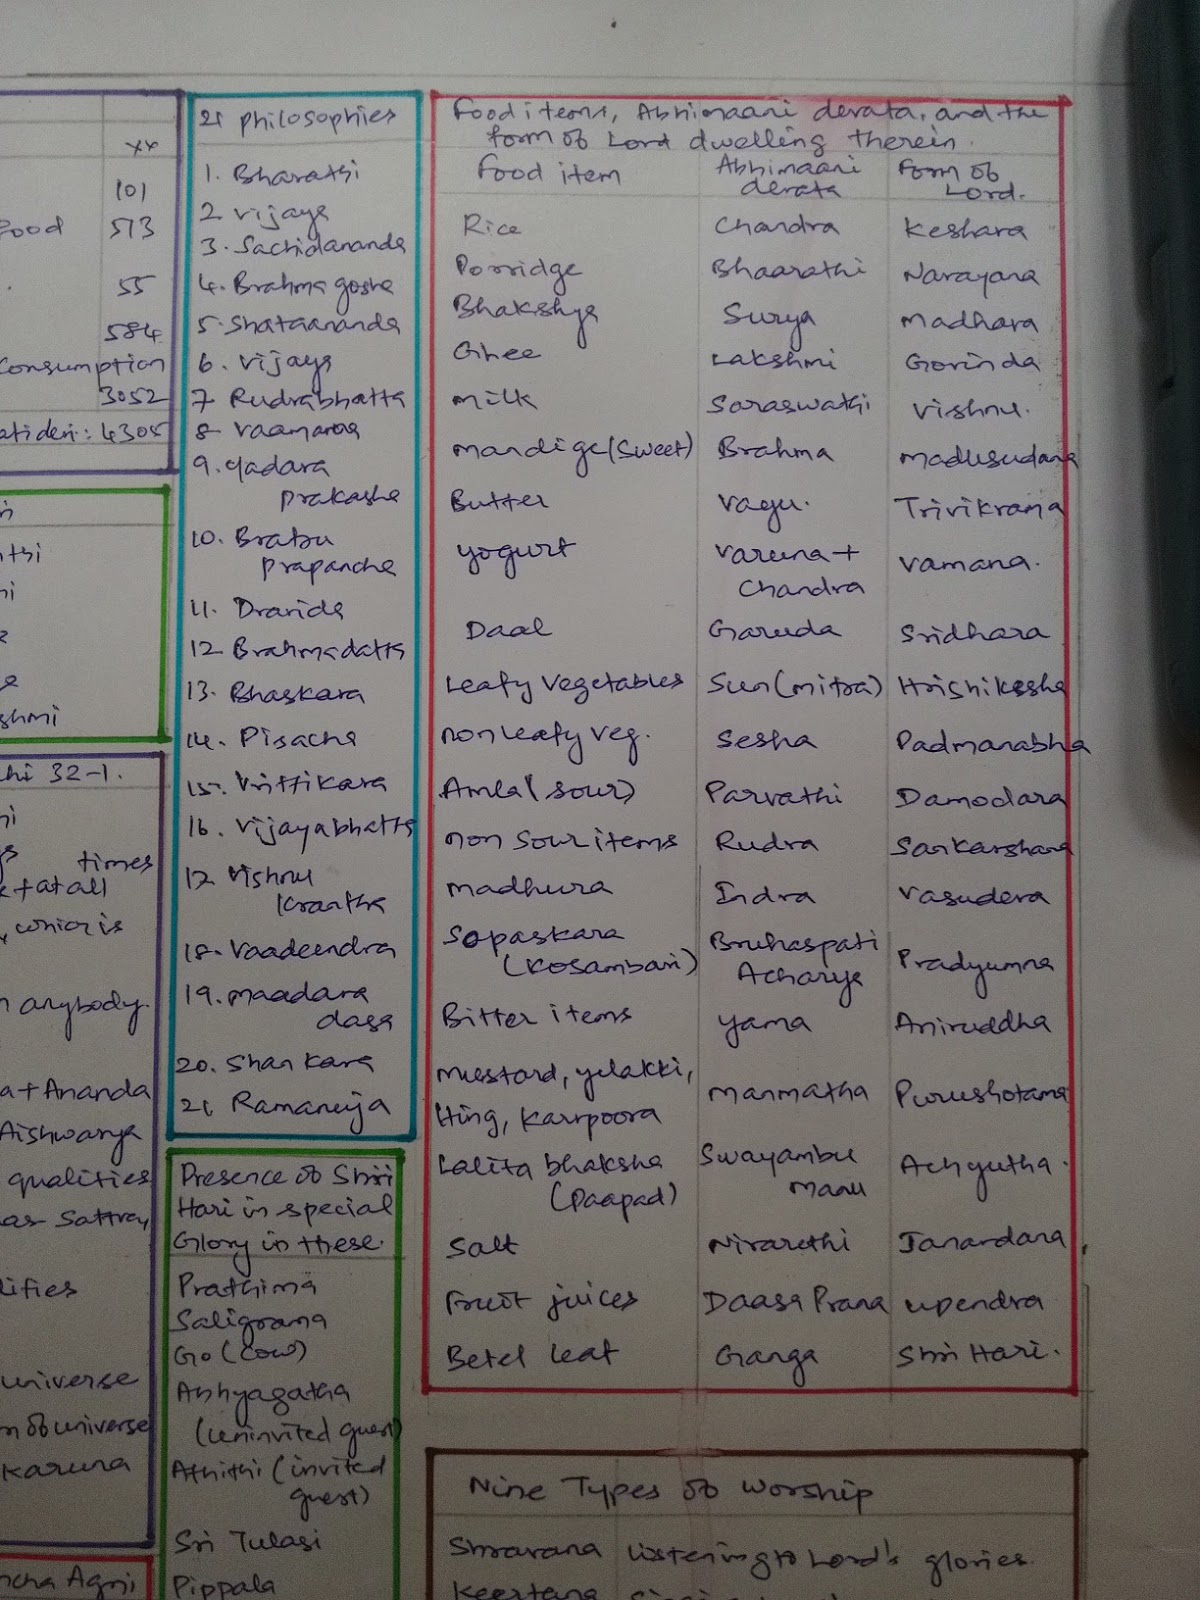 xx
101
food 513
55
584
Consumption
3052
4305
thi
shmi
32-1.
times
at all
, which is
anybody.
a + Ananda
Aishwarya
qualities
universe
n of universe
Karuna
Agni
21 philosophies
1. Bharathi
2 Vijaya
3. Sachidananda
4. Brahma gosha
5. Shataananda
6. Vijaya
7 Rudrabhatta
8 Vaamana
9. Yadava
prakasha
10.
prapancha
11. Dravida
12 Brahmadatta
13. Bhaskara
14. Pisacha
15. Vrittikara
16. Vijayabhatta
17 Vishnu
Krantha
18. Vaadeendra
19. Maadava
dasa
20. Shankara
21 Ramanuja
Presence of Shri
Hari in special
Glory in these.
Prathima
Saligrama
Go (cow)
Abhyagatha
(uninvited guest)
Athithi (invited
guest)
Sri Tulasi
Pippala
Food items, Abhimaani devata, and the
form of Lord dwelling therein.
Food item Abhimaani devata Form of Lord.
Rice Chandra Keshava
Porridge Bhaarathi Narayana
Bhakshya Surya Madhava
Ghee Lakshmi Govinda
Milk Saraswathi Vishnu.
Mandige (sweet) Brahma Madusudana
Butter Vayu. Trivikrama
Yogurt Varuna + Chandra Vamana.
Daal Garuda Sridhara
Leafy vegetables Sun (mitra) Hrishikesha
non leafy veg. Sesha Padmanabha
Amla (sour) Parvathi Damodara
non sour items Rudra Sankarshana
Madhura Indra Vasudeva
Sopaskara (Kosambari) Bruhaspati Acharya Pradyumna
Bitter items Yama Aniruddha
Mustard, yelakki,
Hing, Karpoora Manmatha Purushotama
Lalita bhaksha (Paapad) Swayambu Manu Achyutha.
Salt Niraruthi Janardana
Fruit juices Daasa Prana Upendra
Betel leaf Ganga Shri Hari.
Nine Types of Worship
Shravana Listening to Lord's glories.
Keertana